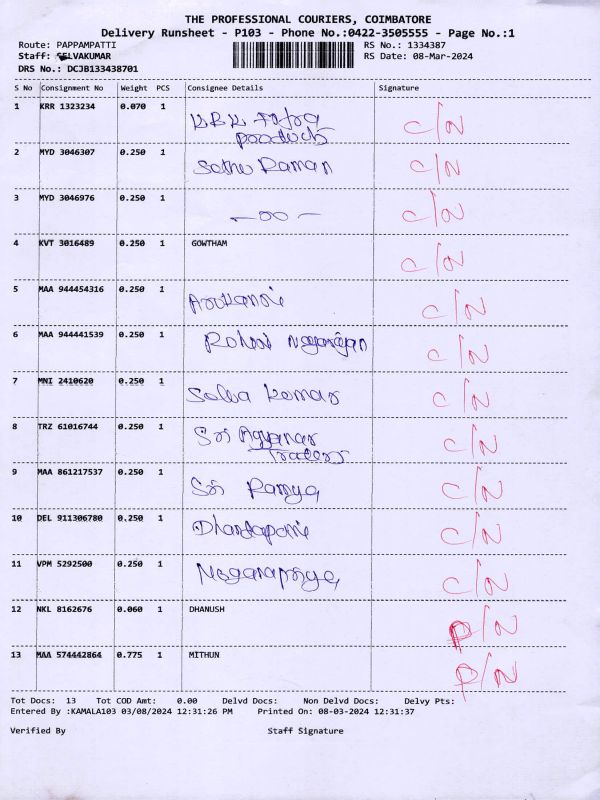 THE PROFESSIONAL COURIERS, COIMBATORE
Delivery Runsheet - P103 - Phone No.:0422-3505555 - Page No.:1
Route: PAPPAMPATTI RS No.: 1334387
Staff: SELVAKUMAR RS Date: 08-Mar-2024
DRS No.: DCJB133438701
S No Consignment No Weight PCS Consignee Details Signature
1 KRR 1323234 0.070 1 K.R.K products C/N
2 MYD 3046307 0.250 1 Sethu Raman C/N
3 MYD 3046976 0.250 1 C/N
4 KVT 3016489 0.250 1 GOWTHAM C/N
5 MAA 944454316 0.250 1 C/N
6 MAA 944441539 0.250 1 Rohini Nagarajan C/N
7 MNI 2410620 0.250 1 Selva kumar C/N
8 TRZ 61016744 0.250 1 Sri Ayyanar C/N
Traders
9 MAA 861217537 0.250 1 Sri Ramya C/N
10 DEL 911306780 0.250 1 Dhandapani C/N
11 VPM 5292500 0.250 1 Nagarapriya C/N
12 NKL 8162676 0.060 1 DHANUSH P/N
13 MAA 574442864 0.775 1 MITHUN P/N
Tot Docs: 13 Tot COD Amt: 0.00 Delvd Docs: Non Delvd Docs: Delvy Pts:
Entered By :KAMALA103 03/08/2024 12:31:26 PM Printed On: 08-03-2024 12:31:37
Verified By Staff Signature